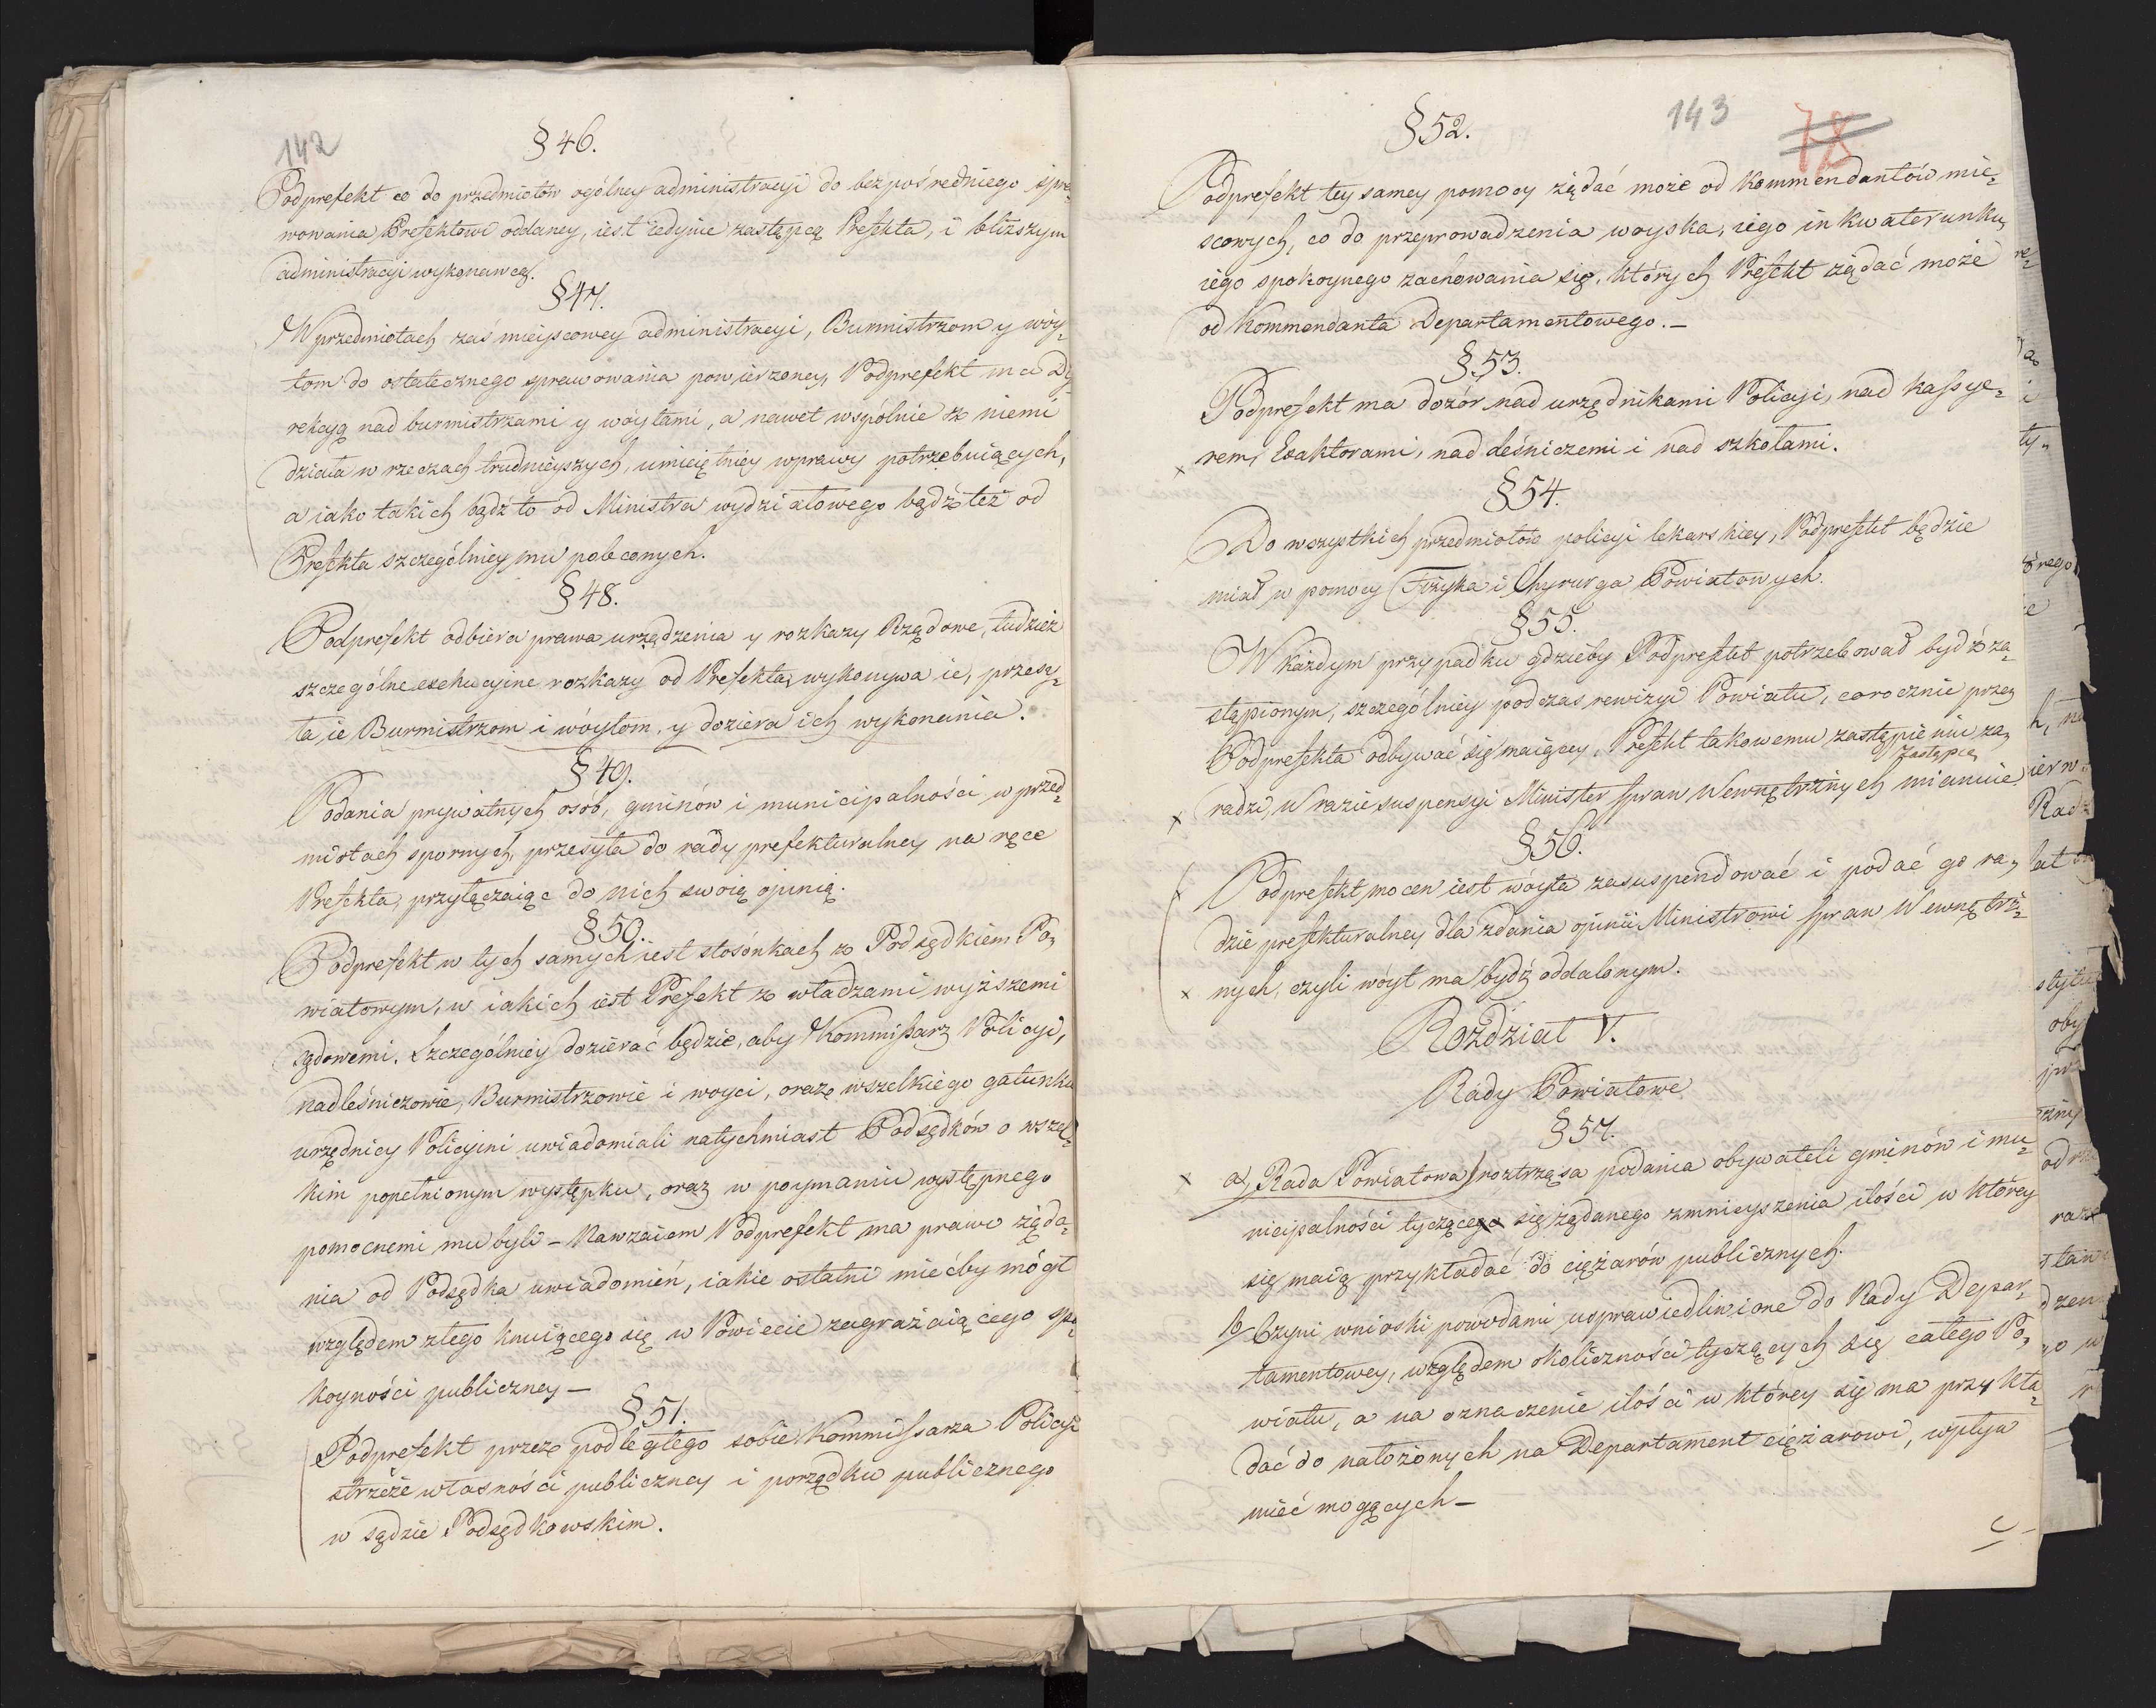 142
§ 46.
Podprefekt co do przedmiotów ogólney administracyi do bezpośredniego spra,
wowania Prefektowi oddaney, iest iedynie zastępcą Prefekta, i bliższym
administracyi wykonawcą.
§ 47.
W przedmiotach zaś mieyscowey administracyi, Burmistrzom y wóy,
tom do ostatecznego sprawowania powierzoney, Podprefekt ma Dy,
rekcyą nad burmistrzami y wóytami, a nawet wspólnie z niemi
działa w rzeczach trudnieyszych, umieiętney wprawy potrzebuiących,
a iako takich bądź to od Ministra wydziałowego bądź też od
Prefekta szczególniey mu poleconych.
§ 48.
Podprefekt odbiera prawa urządzenia y rozkazy Rządowe, tudzież
szczególne exekucyine rozkazy od Prefekta, wykonywa ie, przesy,
ła ie Burmistrzom i wóytom, y doziera ich wykonania.
§ 49.
Podania prywatnych osób, gminów i municipalności w przed,
miotach spornych, przesyła do rady prefekturalney na ręce
Prefekta, przyłączaiąc do nich swoią opinią.
§ 50.
Podprefekt w tych samych iest stosónkach z Podsędkiem Po,
wiatowym, w iakich iest Prefekt z władzami wyższemi
sądowemi. Szczególniey dozierać będzie, aby Kommissarz Policyi,
nadleśniczowie, Burmistrzowie i woyci, oraz wszelkiego gatunku
urzędnicy Policyini uwiadomiali natychmiast Podsędków o wszel,
kim popełnionym występku, oraz w poymaniu występnego
pomocnemi mu byli – Nawzaiem Podprefekt ma prawo żąda,
nia od Podsędka uwiadomień, iakie ostatni miećby mógł
względem złego knuiącego się w Powiecie zagrażaiącego spo,
koyności publiczney –
§ 51.
Podprefekt przez podległego sobie Kommissarza Policyi
strzeże własności publiczney i porządku publicznego
w sądzie Podsędkowskim.
143
78
§ 52.
Podprefekt tey samey pomocy żądać może od Kommendantów miey,
scowych, co do przeprowadzenia woyska, iego inkwaterunku,
iego spokoynego zachowania się, których Prefekt żądać może
od Kommendanta Departamentowego. –
§ 53.
Podprefekt ma dozór nad urzędnikami Policyi, nad kassye,
x rem, Exaktorami, nad leśniczemi i nad szkołami.
§ 54.
Do wszystkich przedmiotów policyi lekarskiey, Podprefekt będzie
miał w pomocy Fizyka i Chyrurga Powiatowych.
§ 55.
W każdym przypadku gdzieby Podprefekt potrzebował bydź za,
stąpionym, szczególniey podczas rewizyi Powiatu, corocznie przez
Podprefekta odbywać się maiącey, Prefekt takowemu zastąpieniu za,
Zastępcę
x radzi, w razie suspensyi Minister Spraw Wewnętrznych mianuie
§ 56.
Podprefekt mocen iest wóyta zasuspendować i podać go ra,
dzie prefekturalney dla zdania opinii Ministrowi Spraw Wewnętrz,
x nych, czyli wóyt ma bydź oddalonym.
Rozdział V.
Rady Powiatowe
§ 57.
x a, Rada Powiatowa roztrząsa podania obywateli gminów i mu,
nicipalności tyczące się żądanego zmnieyszenia ilości w którey
się maią przykładać do ciężarów publicznych.
b, Czyni wnioski powodami usprawiedliwione do Rady Depar,
tamentowey, względem okoliczności tyczących się całego Po,
wiatu, a na oznaczenie ilości w którey się ma przykła,
dać do nałożonych na Departament ciężarowi, wpływ
mieć mogących –
c